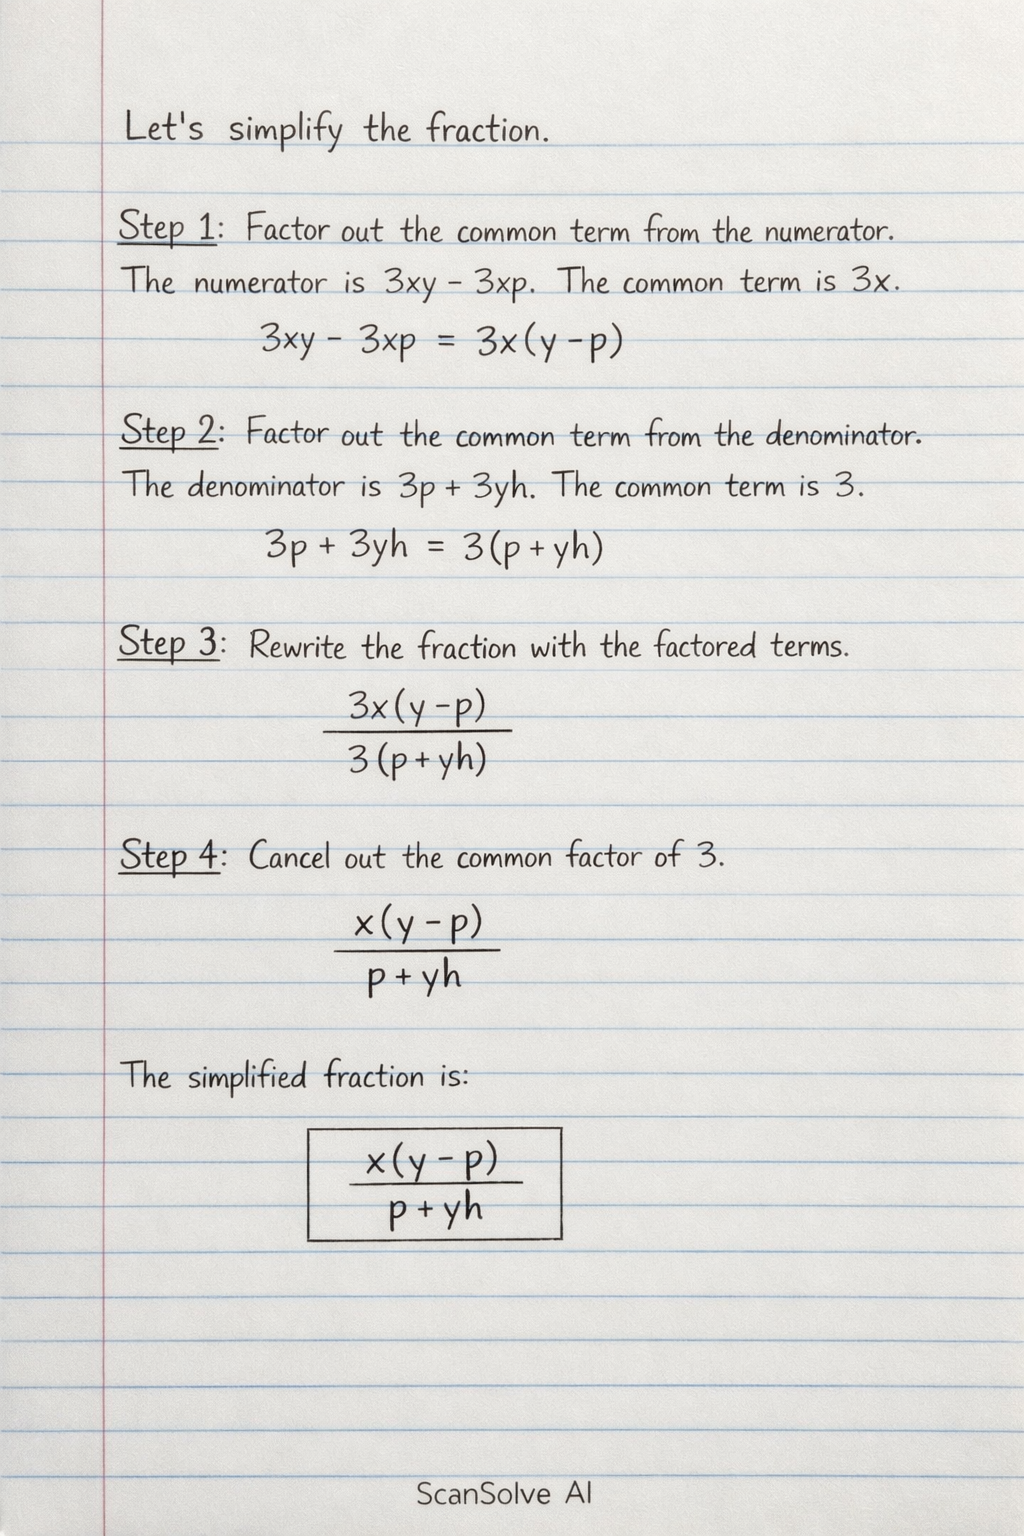 Let's simplify the fraction.
Step 1: Factor out the common term from the numerator.
The numerator is 3xy - 3xp. The common term is 3x.
3xy - 3xp = 3x(y - p)
Step 2: Factor out the common term from the denominator.
The denominator is 3p + 3yh. The common term is 3.
3p + 3yh = 3(p + yh)
Step 3: Rewrite the fraction with the factored terms.
3x(y - p)
3(p + yh)
Step 4: Cancel out the common factor of 3.
x(y - p)
p + yh
The simplified fraction is:
x(y - p)
p + yh
ScanSolve AI